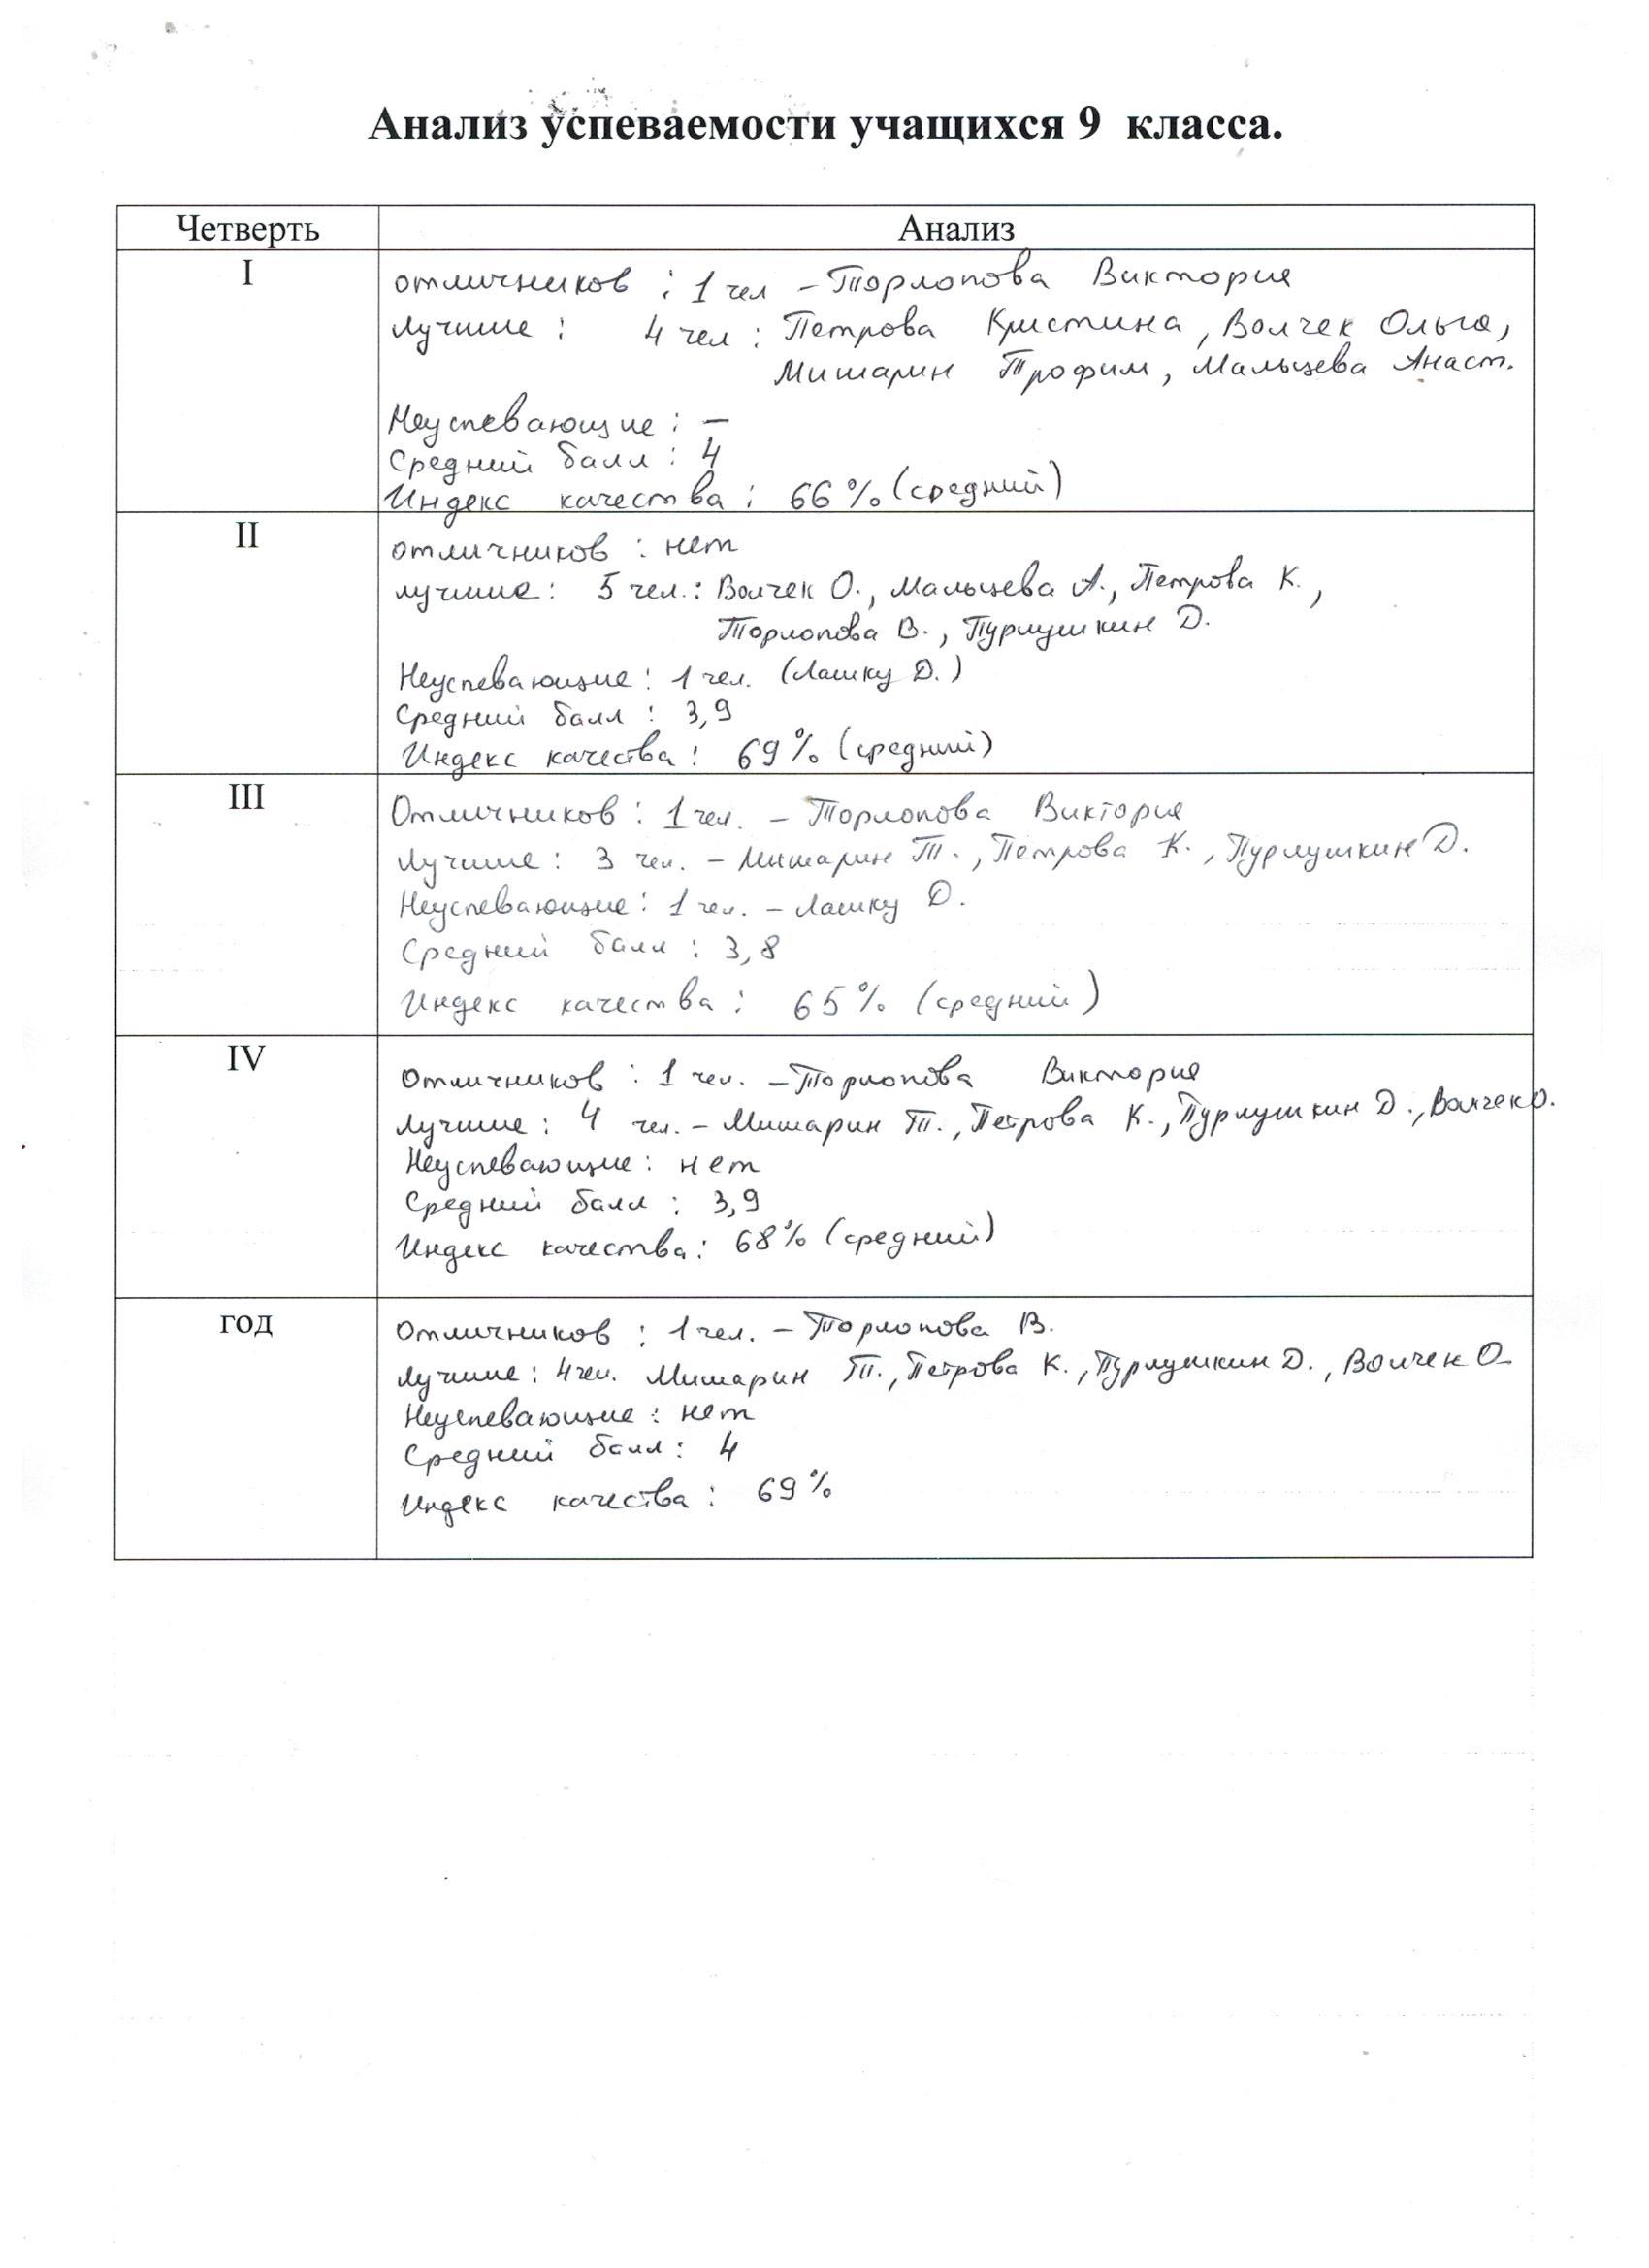 Анализ успеваемости учащихся 9 класса.
Четверть Анализ
I
отличников : 1 чел - Торлопова Виктория
Лучшие : 4 чел : Петрова Кристина, Волчек Ольга,
Мишарин Трофим, Мальцева Анаст.
Неуспевающие : —
Средний балл : 4
Индекс качества : 66% (средний)
II
отличников : нет
лучшие : 5 чел.: Волчек О., Мальцева А., Петрова К.,
Торлопова В., Пурлушкин Д.
Неуспевающие : 1 чел. (Лашку Д.)
Средний балл : 3,9
Индекс качества : 69% (средний)
III
Отличников : 1 чел. - Торлопова Виктория
Лучшие : 3 чел. - Мишарин Т., Петрова К., Пурлушкин Д.
Неуспевающие : 1 чел. - Лашку Д.
Средний балл : 3,8
Индекс качества : 65% (средний)
IV
Отличников : 1 чел. - Торлопова Виктория
Лучшие : 4 чел. - Мишарин Т., Петрова К., Пурлушкин Д., Волчек О.
Неуспевающие : нет
Средний балл : 3,9
Индекс качества : 68% (средний)
год
Отличников : 1 чел. - Торлопова В.
Лучшие : 4 чел. Мишарин Т., Петрова К., Пурлушкин Д., Волчек О.
Неуспевающие : нет
Средний балл : 4
Индекс качества : 69%